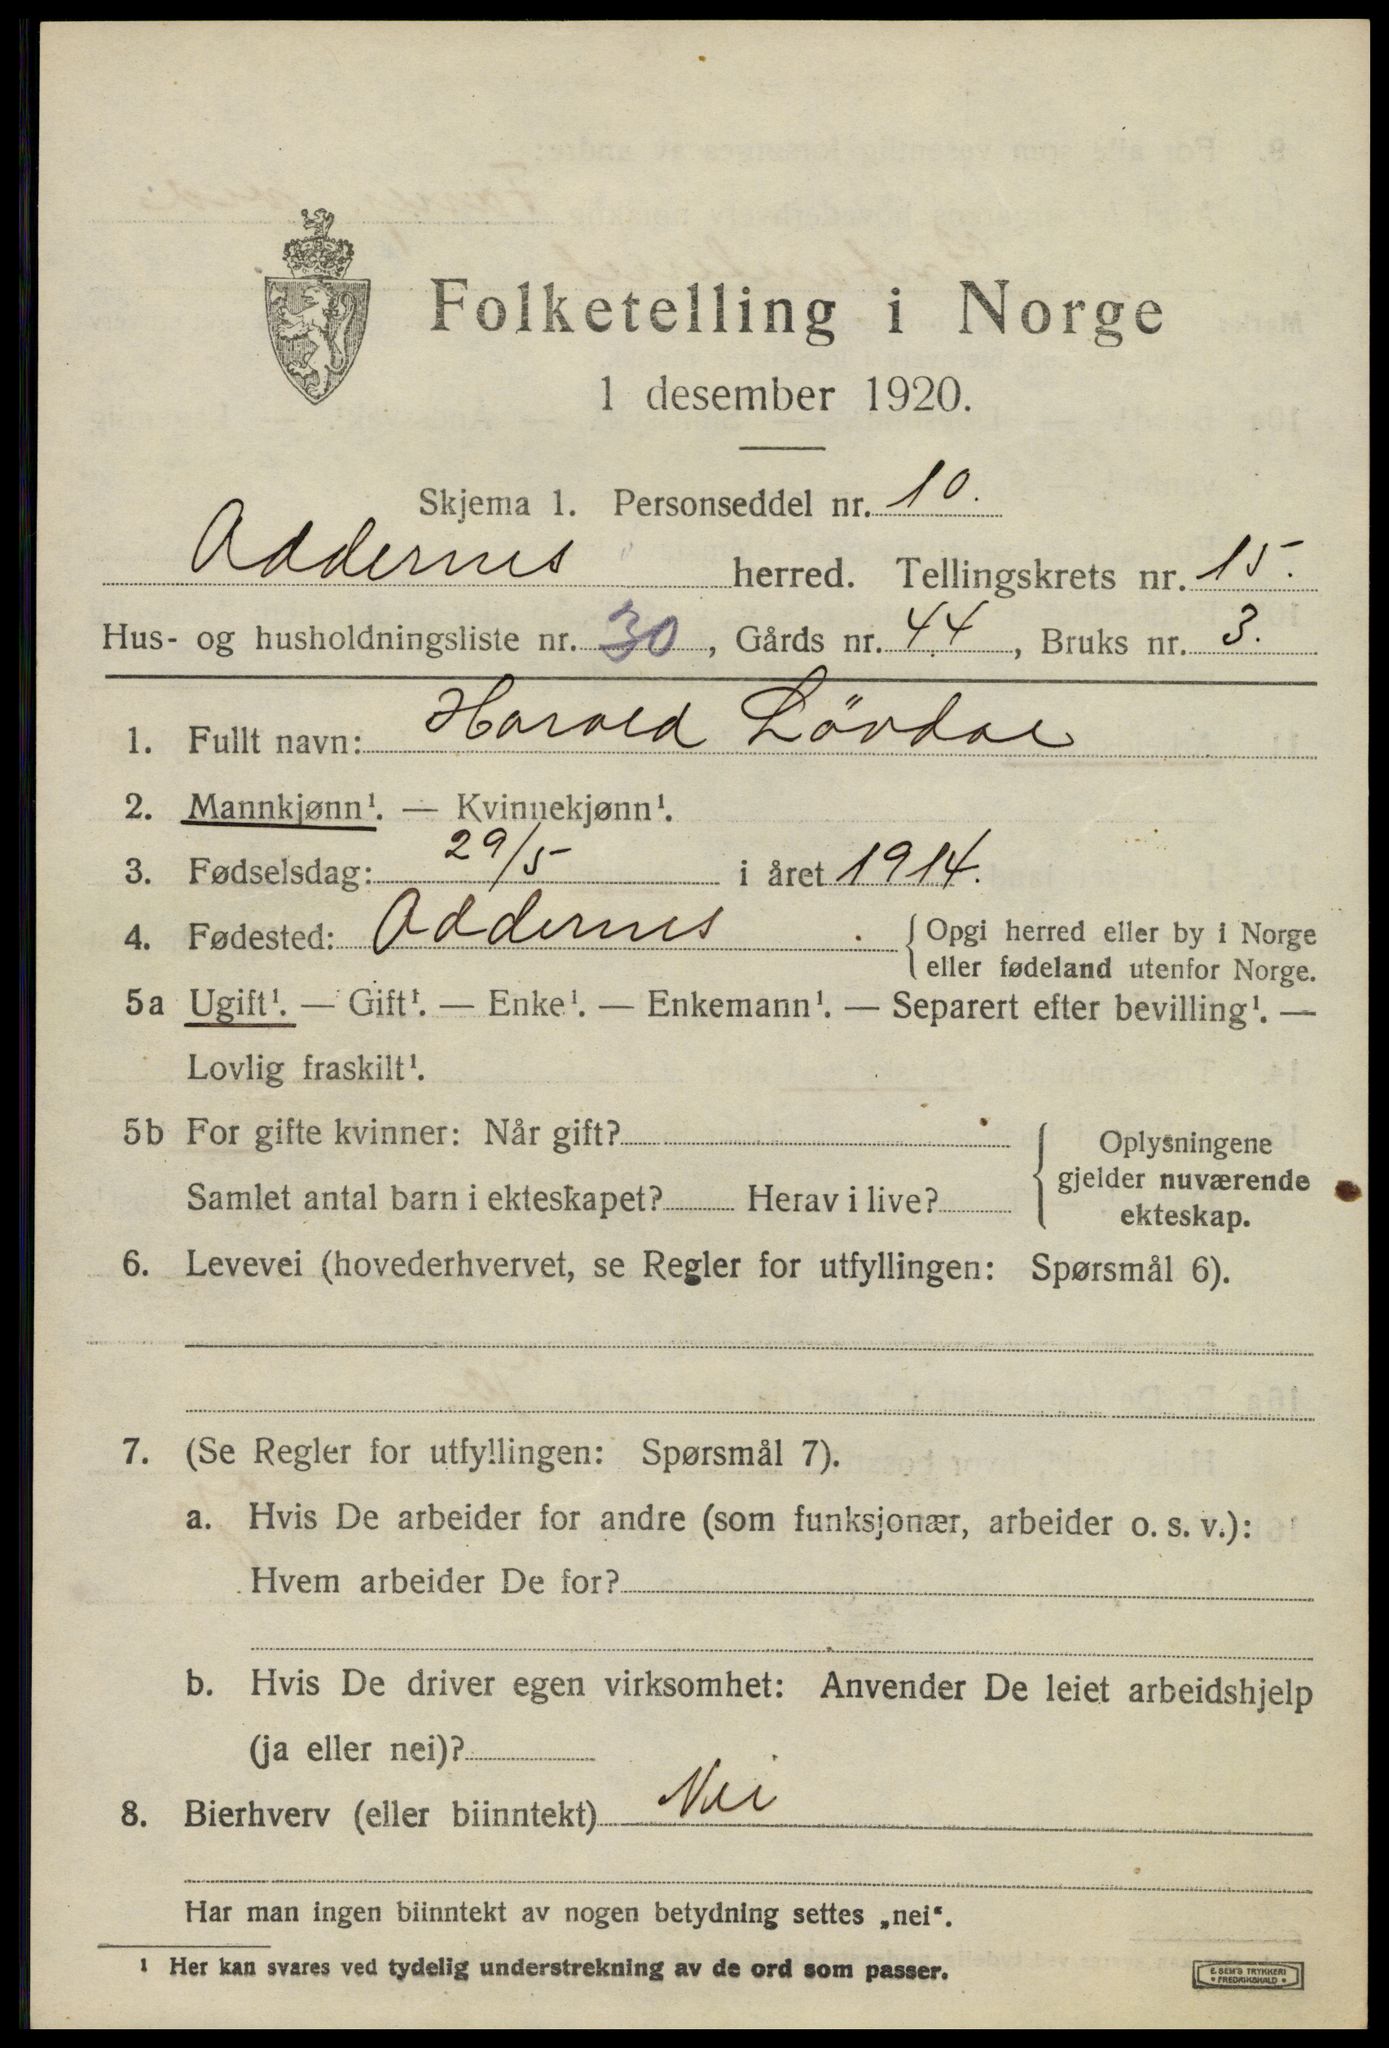 Folketelling i Norge
1 desember 1920.
Skjema 1. Personseddel nr. 10.
Oddernes herred. Tellingskrets nr. 15.
Hus- og husholdningsliste nr. 30, Gårds nr. 44, Bruks nr. 3.
1. Fullt navn: Harald Lövdal
2. Mannkjønn¹. — Kvinnekjønn¹.
3. Fødselsdag: 29/5 i året 1914.
4. Fødested: Oddernes. { Opgi herred eller by i Norge
eller fødeland utenfor Norge.
5a Ugift¹. — Gift¹. — Enke¹. — Enkemann¹. — Separert efter bevilling¹. —
Lovlig fraskilt¹.
5b For gifte kvinner: Når gift?
Samlet antal barn i ekteskapet? Herav i live?
{ Oplysningene
gjelder nuværende
ekteskap.
6. Levevei (hovederhvervet, se Regler for utfyllingen: Spørsmål 6).
7. (Se Regler for utfyllingen: Spørsmål 7).
a. Hvis De arbeider for andre (som funksjonær, arbeider o. s. v.):
Hvem arbeider De for?
b. Hvis De driver egen virksomhet: Anvender De leiet arbeidshjelp
(ja eller nei)?
8. Bierhverv (eller biinntekt) Nei
Har man ingen biinntekt av nogen betydning settes „nei“.
¹ Her kan svares ved tydelig understrekning av de ord som passer.
E. SEM'S TRYKKERI
• FREDRIKSHALD •